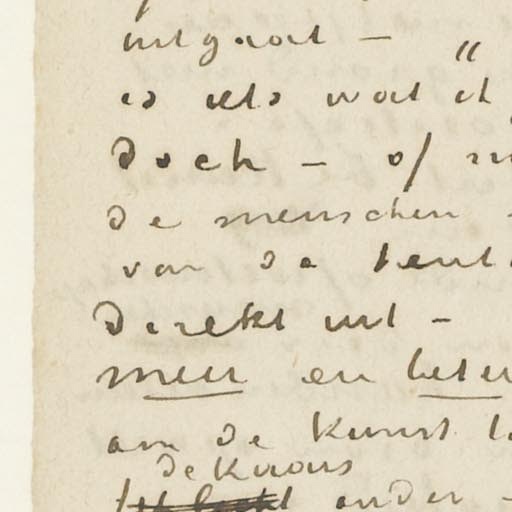 uitgaat — „
is iets wat ik
Doch — of
de menschen
van de
direkt uit —
meer en beter
om de kunst
de kaous
onder